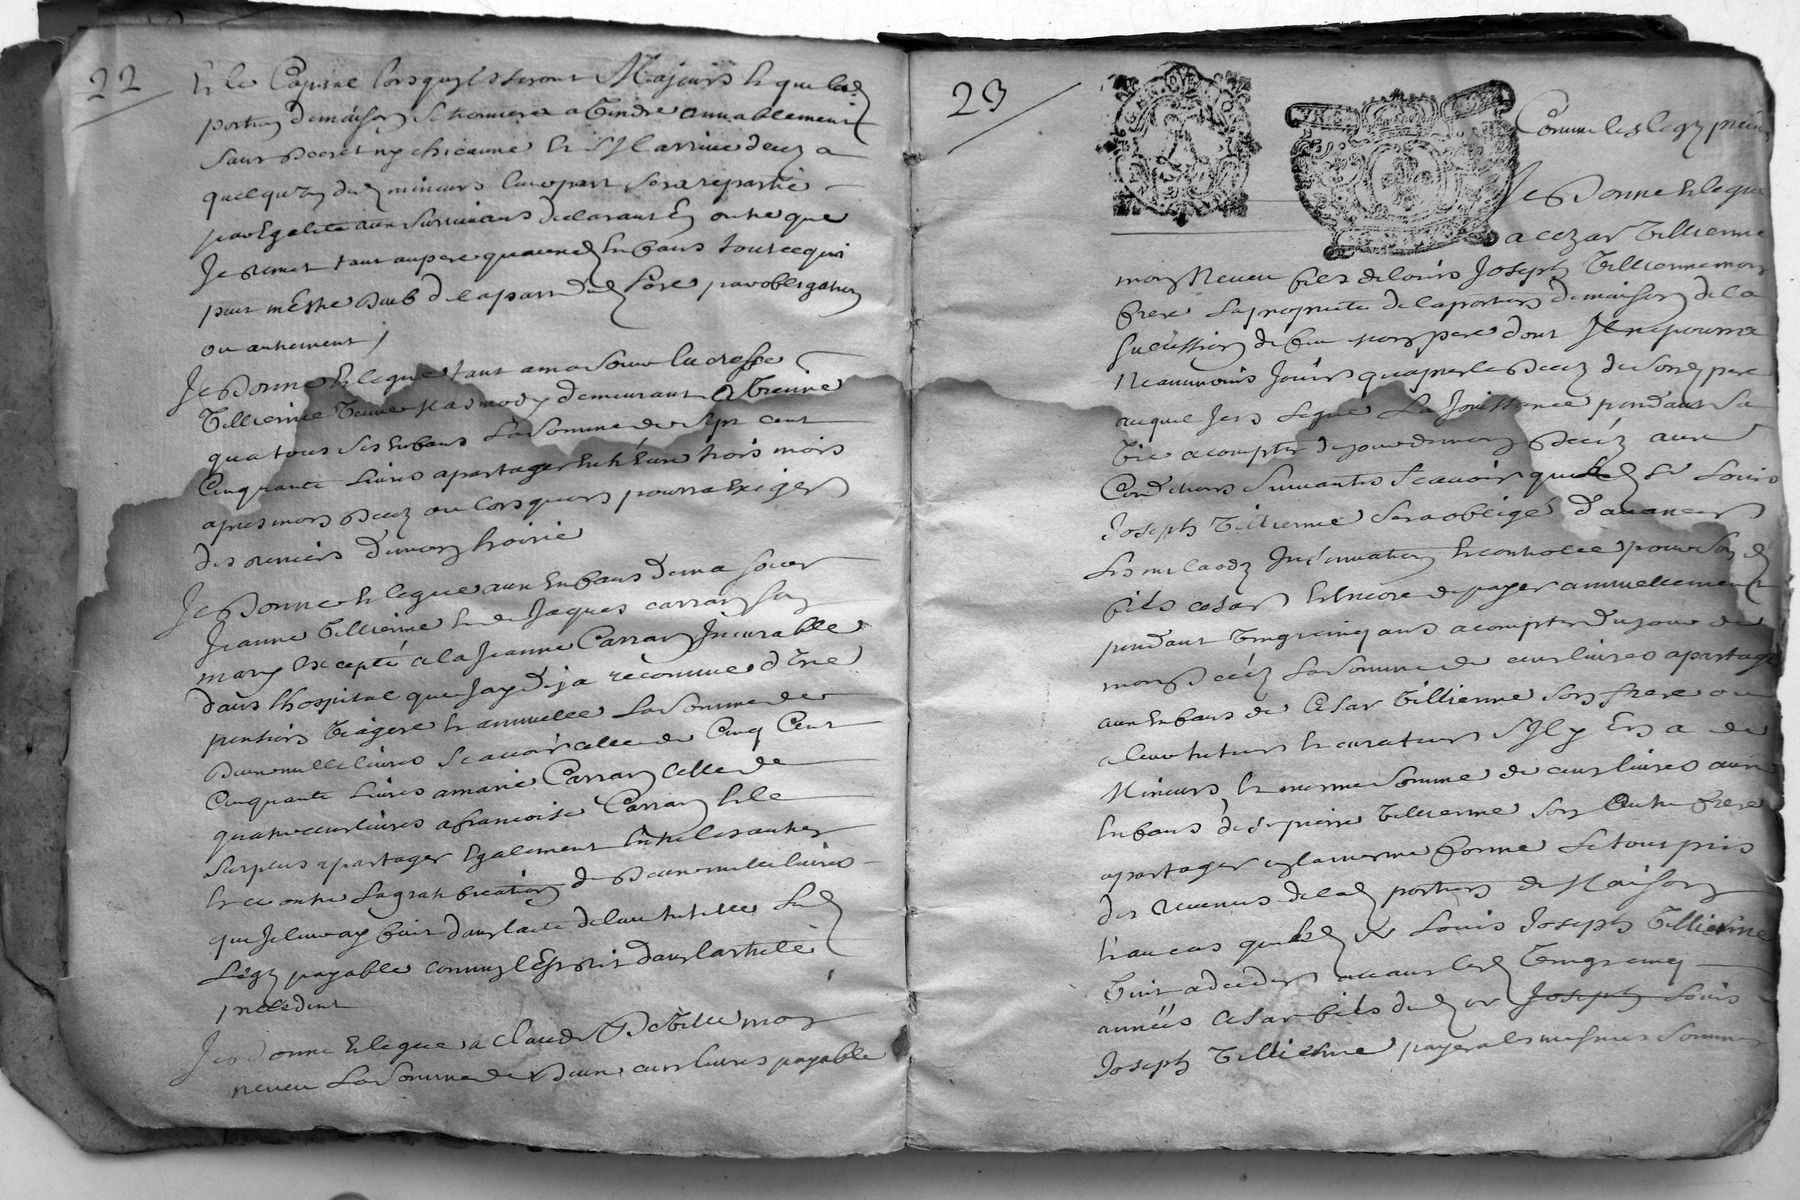 22
Et le Capital lorsquils seront Majeurs et que lad
portion de maison se trouvera a vendre amiablement
sans decret ny chicanne et s'Il arrive decez a
quelqu'un des mineurs leur part sera repartie
par Egalité aux survivans declarant En outre que
Je remet tant au pere qu aux Enfans tout ce qui
peut m'estre dub de la part dud Pere par obligation
ou autrement
Je Donne et legue tant a ma sœur lucresse
Tillierine veuve demeurant a vienne
qua tous ses Enfans La somme de sept cent
Cinquante Livres a partager Entr'Eux trois mois
apres mon decez ou lorsquon pourra Exiger
des deniers de mon hoirie
Je Donne et legue aux Enfans de ma sœur
Jeanne Tillierine et de Jaques carran son
mary Excepté a la Jeanne Carran Incurable
dans l'hospital que Jay deja reconnue d'une
pension viagere et annuelle La somme de
deux mille livres Scavoir celle de Cinq Cent
Cinquante Livres a marie Carran celle de
quatre cent livres a francoise Carran Et le
surplus a partager Egalement Entre les autres
Et ce outre la gratification de deux mille livres
que Je leur ay fait dans l'acte de leur tutelle Led
Legs payable comme il Est dit dans l'article
precedent
Je donne Et legue a Claude mon
neveu La somme de deux cent livres payable
23
Comme les legs
Je Donne Et legue
a cezar Tillierine
mon Neveu fils de louis Joseph Tillierine mon
frere La proprieté de la portion de maison de la
succession de feu mon pere dont Il ne pourra
Neanmoins Jouir qu apres le decez de son pere
auquel J'en legue La Jouissance pendant sa
vie a compter du jour de mon decez aux
Conditions suivantes Scavoir que led Sr Louis
Joseph Tillierine sera obligé d'avancer
Les Insinuation Et controlle pour son d
fils cesar Et Encore de payer annuellement
pendant vingt cinq ans a compter du jour de
mon decez La somme de cent livres a partager
aux Enfans de Cesar Tillierine son frere ou
a leur tuteur Et curateur s'Il y En a de
Mineurs Et mesme somme de cent livres aux
Enfans de Sr pierre Tillierine son autre frere
a partager en la mesme forme Le tout pris
des revenus de lad portion de Maison
Et au cas que led Sr Louis Joseph Tillierine
vint a deceder avant lesd vingt cinq
années Cesar fils dud Sr Joseph Louis
Joseph Tillierine payera les mesmes sommes